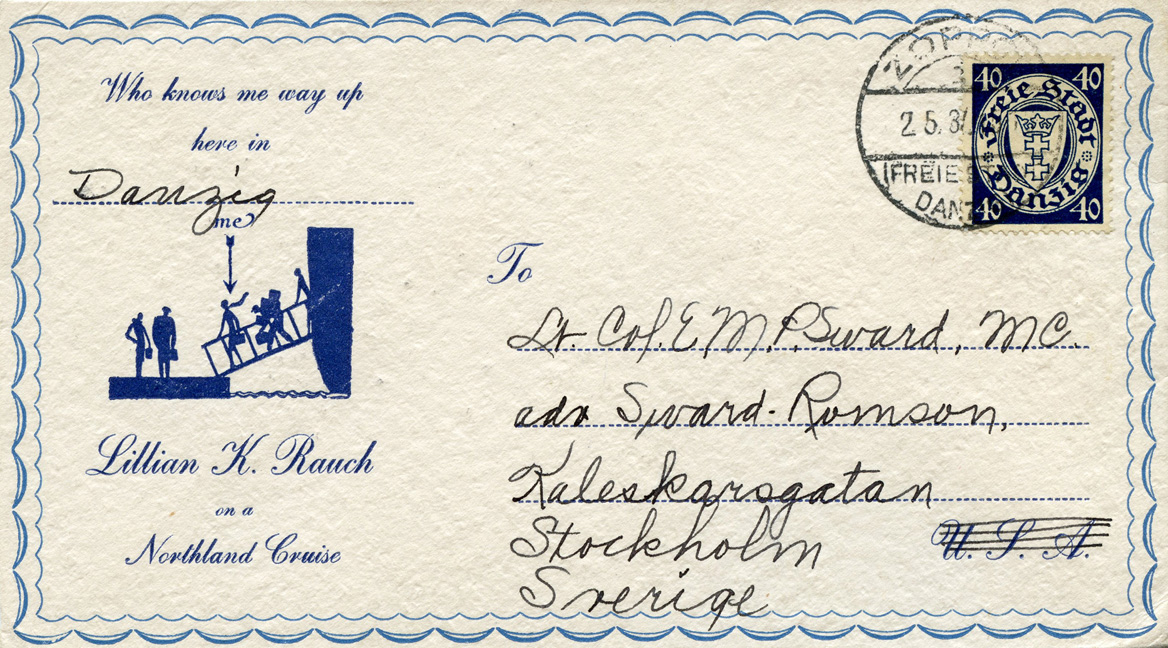 Who knows me way up
here in
Danzig
me
Lillian K. Rauch
on a
Northland Cruise
To
Lt. Col. E M. P. Sward, MC.
adr Sward-Romson,
Kaleskarsgatan
Stockholm
Sverige
U. S. A.
ZOPPO
2 5. 3
(FREIE ST
DANZ
40 40
Freie Stadt
Danzig
40 40